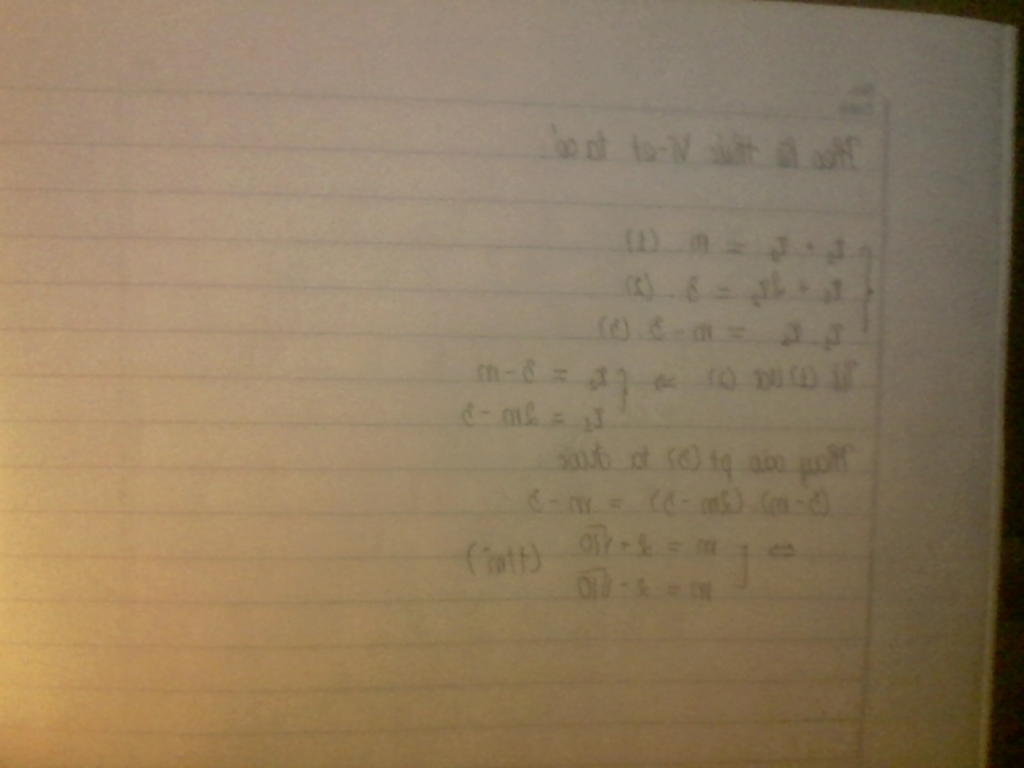 Theo hệ thức Vi-et ta có:
x₁ + x₂ = m (1)
x₁ + 2x₂ = 3. (2)
x₁ x₂ = m - 3 (3)
Từ (1) và (2) ⇒ { x₂ = 3 - m
x₁ = 2m - 3
Thay vào pt (3) ta được
(3-m).(2m-3) = m-3
⇔ [ m = 2+√10
m = 2-√10 (t/m)